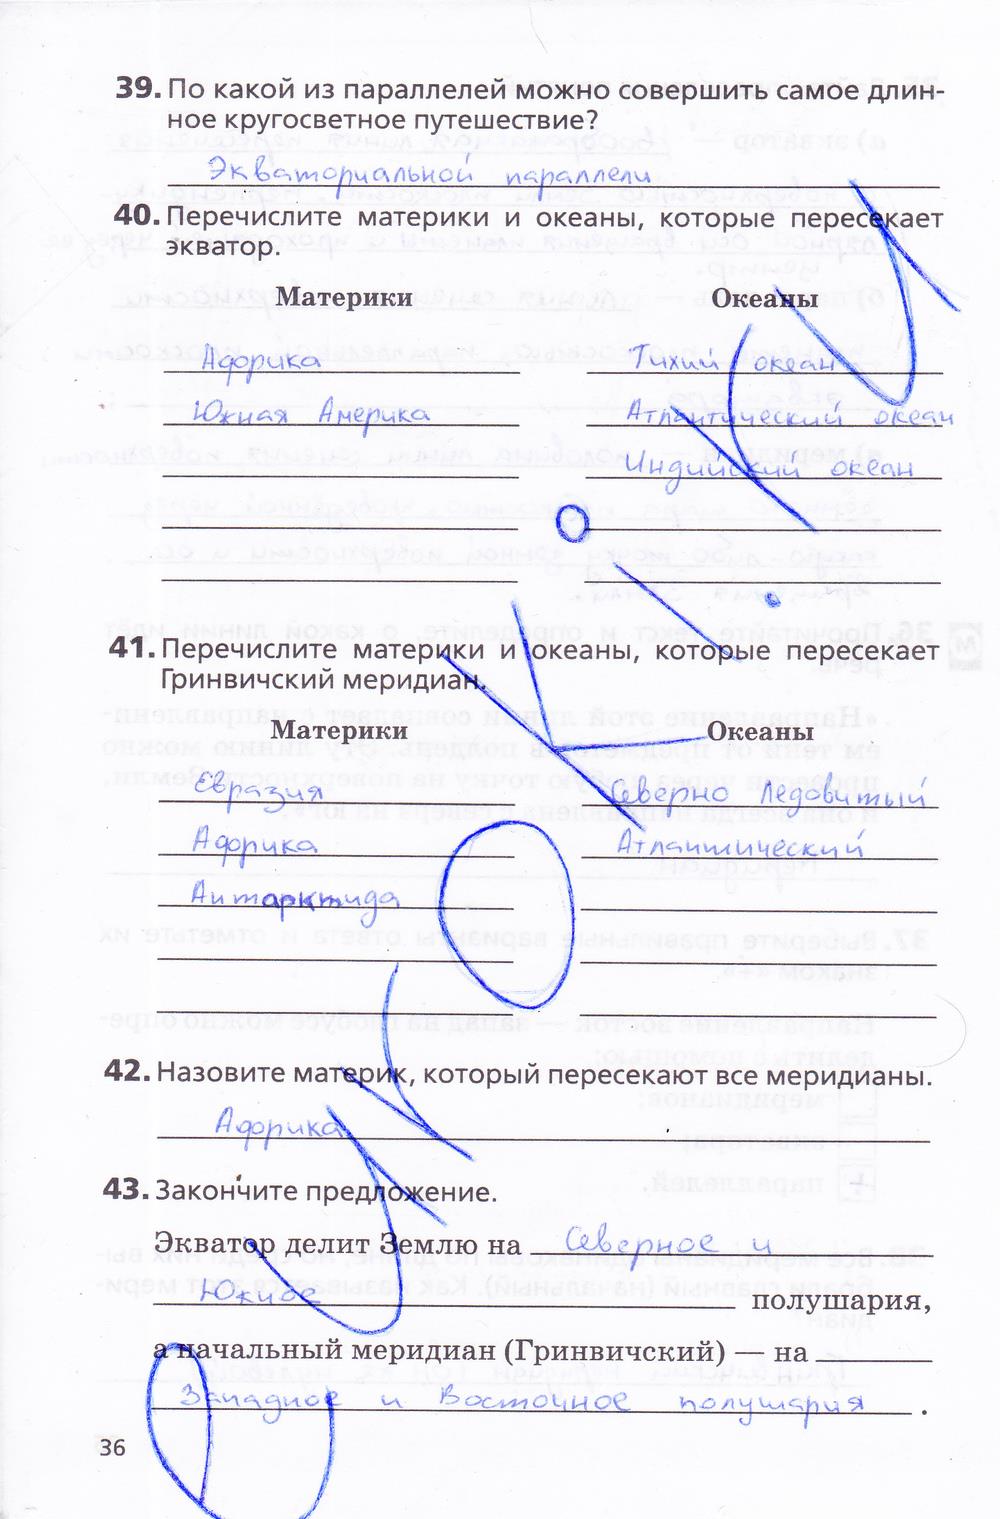 39. По какой из параллелей можно совершить самое длин-
ное кругосветное путешествие?
Экваториальной параллели
40. Перечислите материки и океаны, которые пересекает
экватор.
Материки Океаны
Африка Тихий океан
Южная Америка Атлантический океан
Индийский океан
41. Перечислите материки и океаны, которые пересекает
Гринвичский меридиан.
Материки Океаны
Евразия Северно Ледовитый
Африка Атлантический
Антарктида
42. Назовите материк, который пересекают все меридианы.
Африка
43. Закончите предложение.
Экватор делит Землю на Северное и
Южное полушария,
а начальный меридиан (Гринвичский) — на
Западное и Восточное полушария.
36